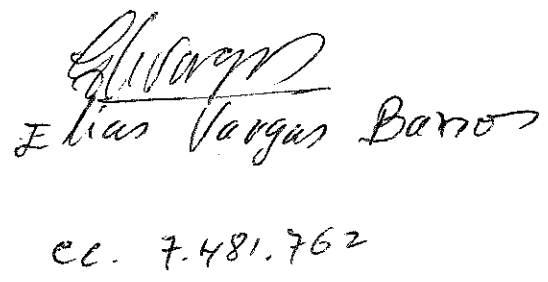 Elias Vargas Barros
cc. 7.481.762